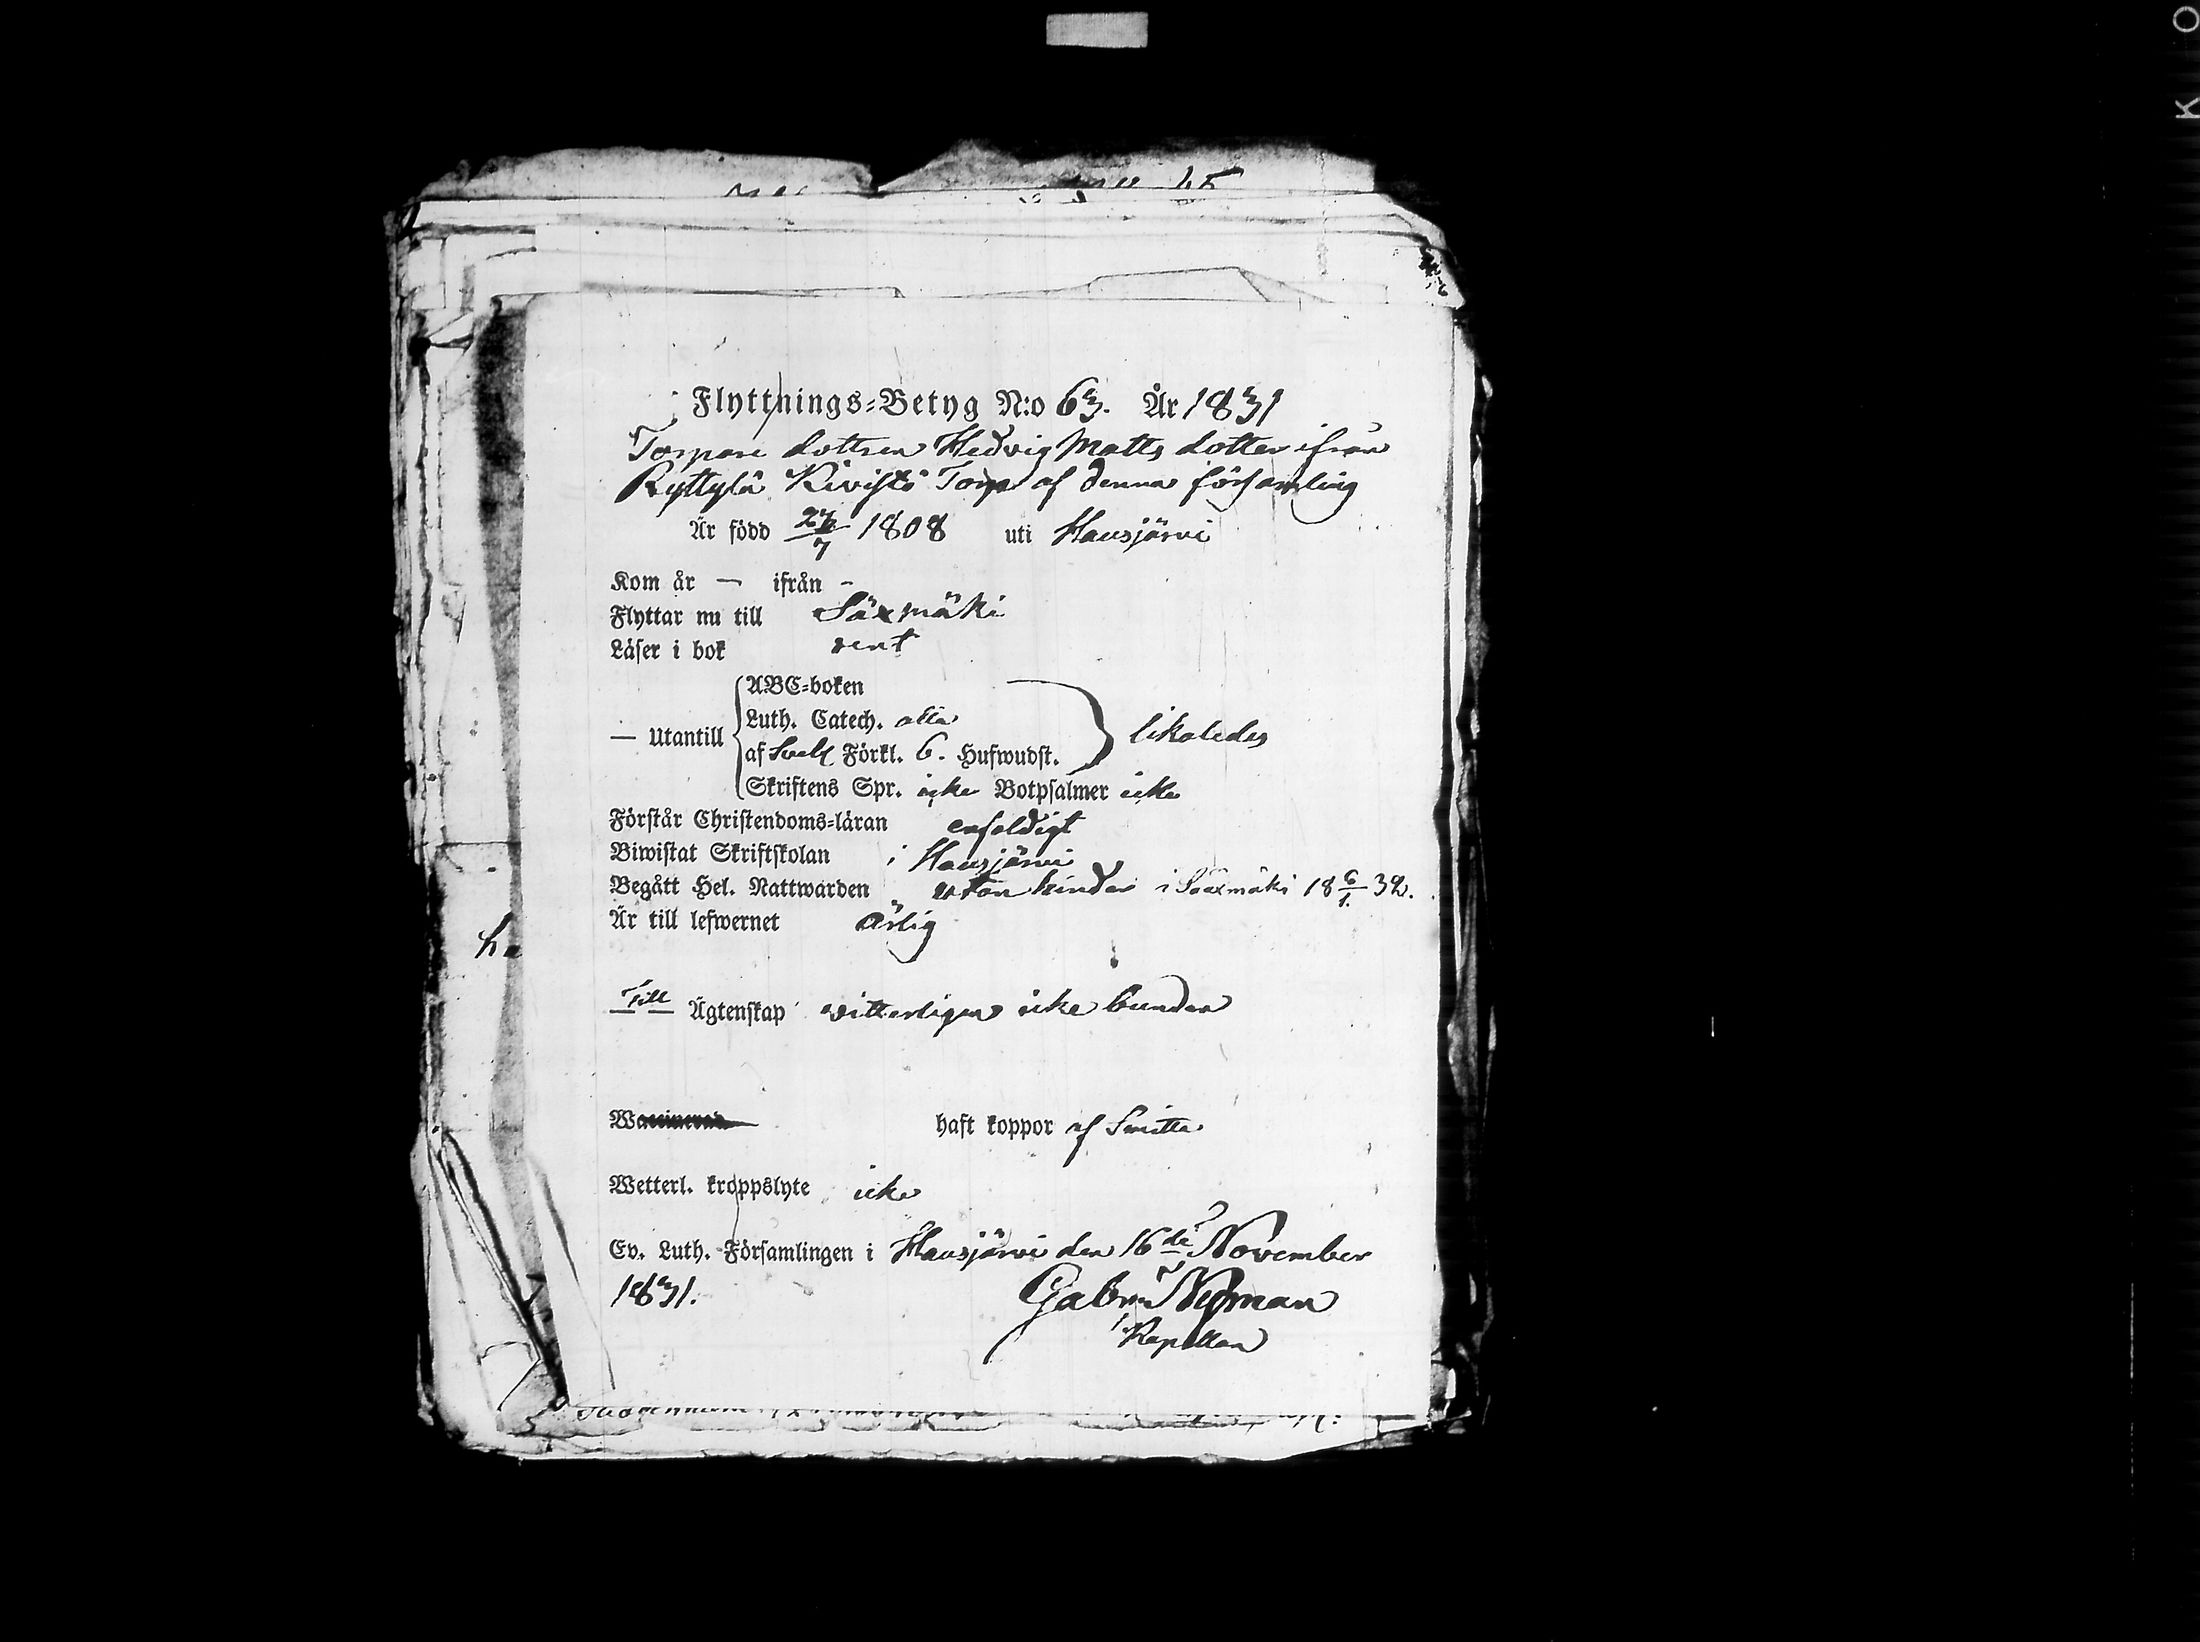 Flyttnings-Betyg N:o 63. År 1831
Torpare dottren Hedvig Matts dotter ifrån
Ryttylä Kivistö Torp af denna församling
Är född 27/7 1808 uti Hausjärvi
Kom år — ifrån -
Flyttar nu till Säxmäki
Läser i bok rent
— Utantill
ABC-boken
Luth. Catech. alla
af Förkl. 6. Hufwudst.
likaledes
Skriftens Spr. icke Botpsalmer icke
Förstår Christendoms-läran enfoldigt
Biwistat Skriftskolan i Hausjärvi
Begått Hel. Nattwarden utan hinder i Saaxmäki 18 6/1. 32.
Är till lefwernet ärlig
Till Ägtenskap witterligen icke bunden
Waccinerad haft koppor af Smitta
Wetterl. kroppslyte icke
Ev. Luth. Församlingen i Hausjärvi den 16de November
1831. Gabr. Nyman
Kapellan